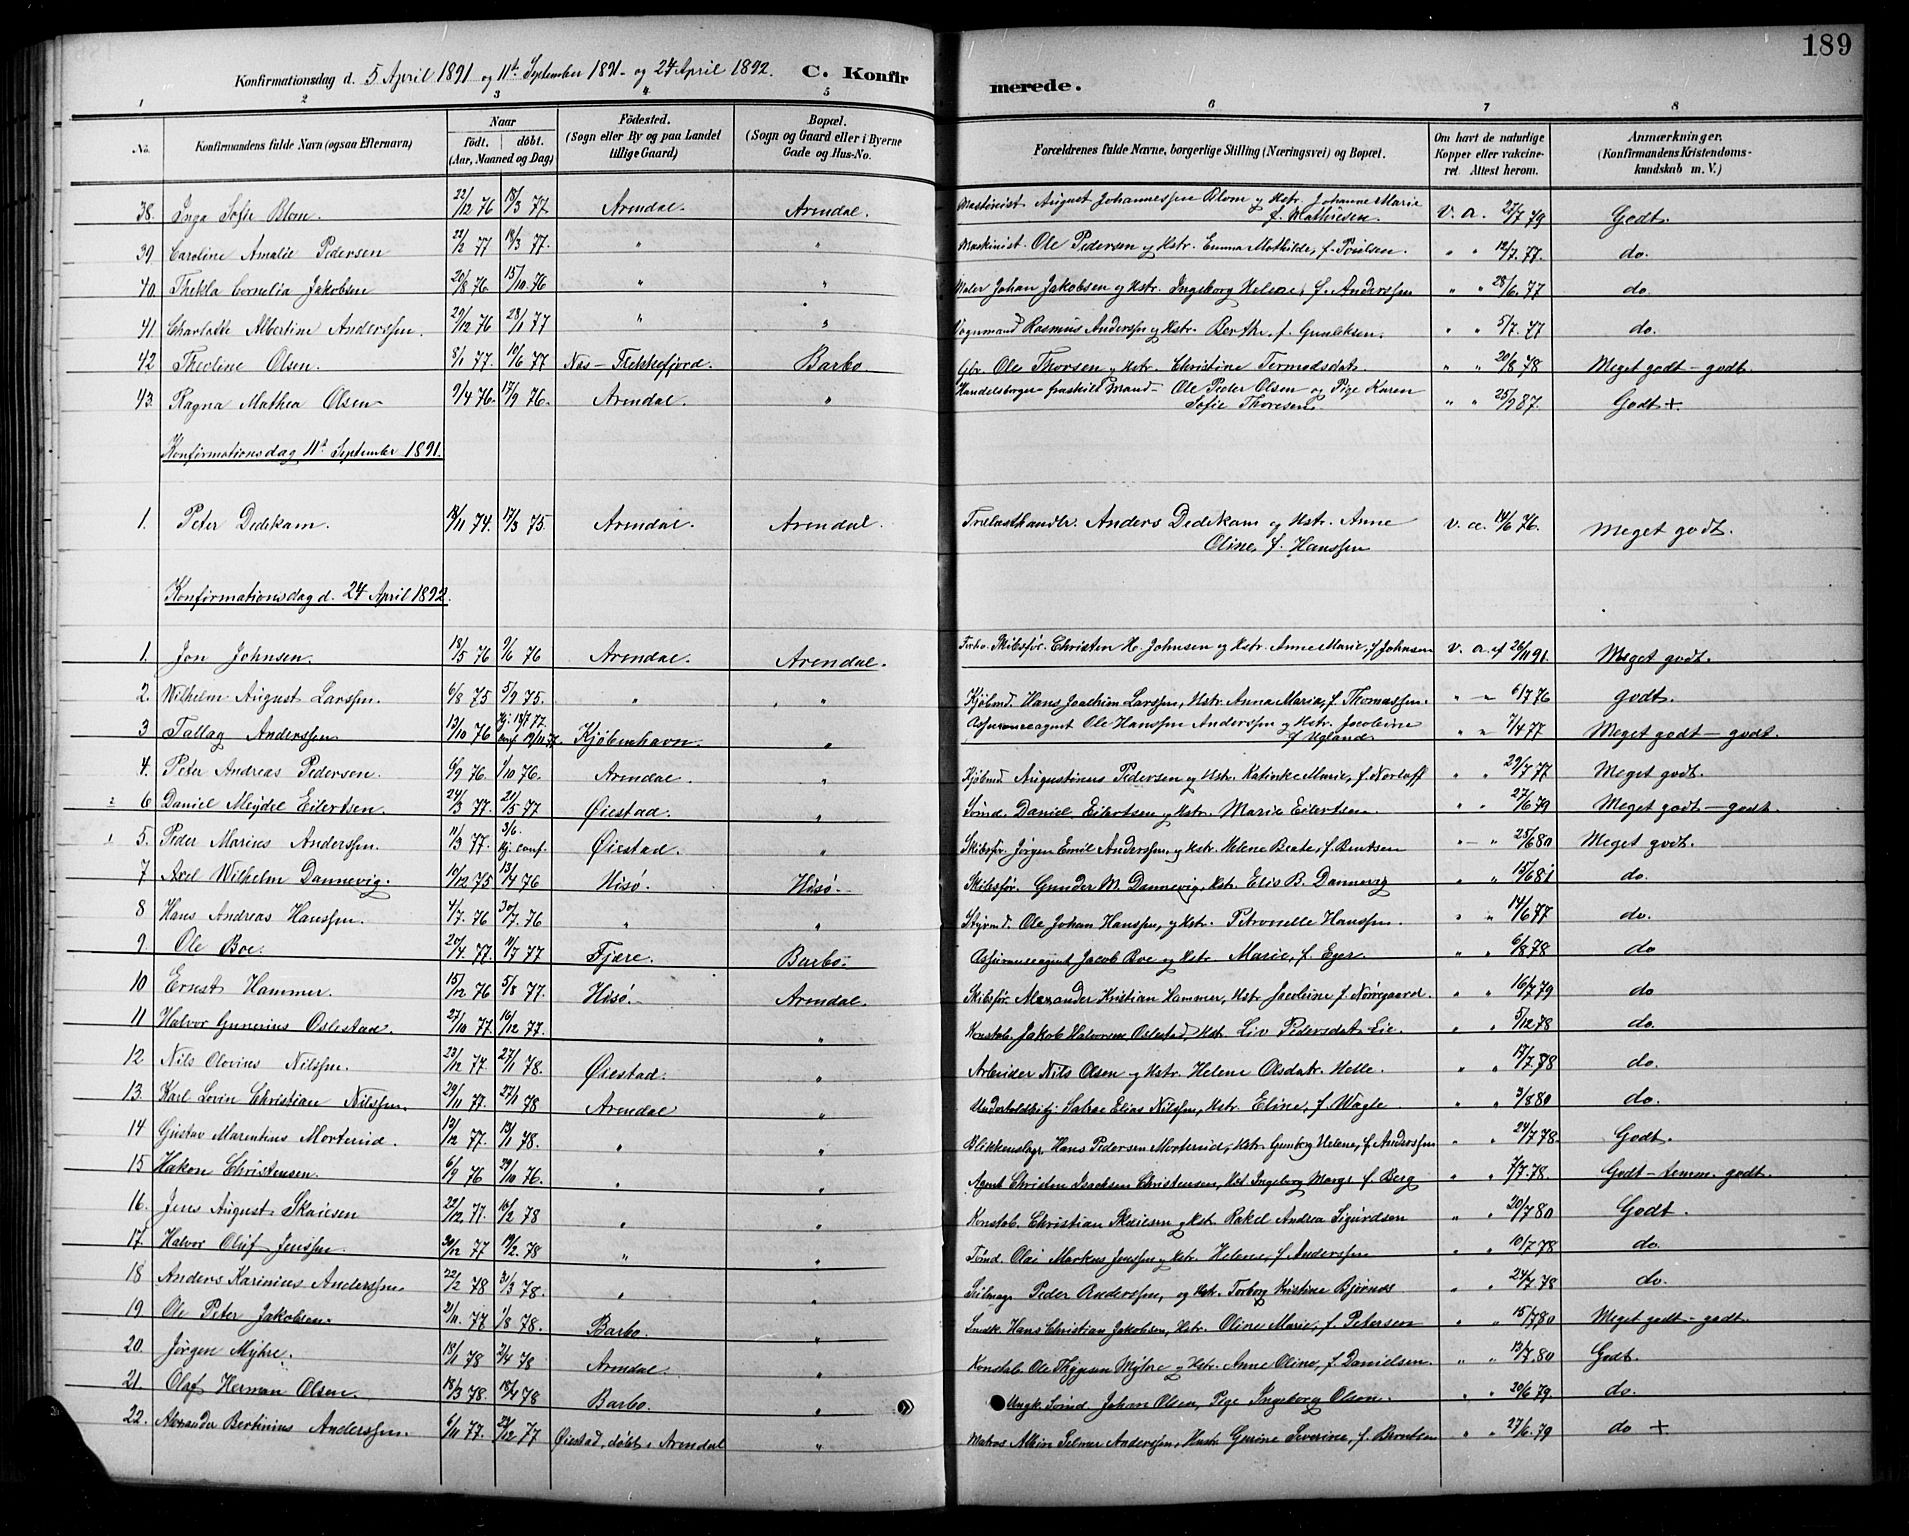 189
Konfirmationsdag d. 5 April 1891 og 11te September 1891 og 24 April 1892. C. Konfirmerede.
1 2 3 4 5 6 7 8
No. Konfirmandens fulde Navn (ogsaa Efternavn) Naar født. døbt. (Aar, Maaned og Dag) Fødested. (Sogn eller By og paa Landet tillige Gaard) Bopæl. (Sogn og Gaard eller i Byerne Gade og Hus-No. Forældrenes fulde Navne, borgerlige Stilling (Næringsvei) og Bopæl. Om havt de naturlige Kopper eller vakcineret. Attest herom. Anmærkninger. (Konfirmandens Kristendomskundskab m. V.)
38. Inga Sofie Blom. 22/12 76 18/3 77 Arendal. Arendal. Maskinist August Johannessen Blom og Hstr. Johanne Marie f. Mathiesen. v. a. 27/7 79 Godt.
39 Caroline Amalie Pedersen 22/2 77 19/3 77. " " Maskinist. Ole Pedersen og Hstr. Emma Mathilde, f. Poulsen. " " 12/7 77. do.
40. Thekla Cornelia Jakobsen 20/8 76 15/10 76 " " Maler Johan Jakobsen og Hstr. Ingeborg Helene, f. Anderssen " " 28/6 77 do.
41 Charlotte Albertine Anderssen. 29/12 76 28/1 77 " " Vognmand Rasmus Anderssen og Hstr. Berthe, f. Gunliksen. " " 5/7 77 do.
42 Theoline Olsen. 8/1 77. 10/6 77 Næs - Flekkefjord. Barbo. Gbr. Ole Thorsen og Hstr. Christine Tormodsdat. " " 20/8 78 Meget godt - godt.
43. Ragna Mathea Olsen 9/4 76. 17/9 76. Arendal. " Handelsborger fraskilt Mand - Ole Peder Olsen og Pige Karen Sofie Thoresen. " " 25/9 87. Godt +
Konfirmationsdag 11te September 1891.
1. Peter Dedekam. 18/11 74. 17/3 75. Arendal. Arendal. Trælasthandlr. Anders Dedekam og Hstr. Anne Oline, f. Hanssen v. a. 14/6 76. Meget godt.
Konfirmationsdag d. 24 April 1892.
1. Jon Johnsen. 18/5 76 9/6 76 Arendal. Arendal. Skibsfør. Christen H. Johnsen og Hstr. Anne Marie, f. Johnsen v. a. af 26/11 91. Meget godt.
2. Wilhelm August Larssen. 6/8 75 5/9 75. " " Kjøbmd. Hans Joachim Larssen, Hstr. Anna Maria, f. Thomassen. " " 6/7 76 Godt.
3 Tallag Anderssen 12/10 76 Kjøbenhavn. " Assuranceagent Ole Hanssen Anderssen og Hstr. Jacobine f. Ugland. " " 7/4 77 Meget godt - godt.
4. Peter Andreas Pedersen. 6/9 76. 1/10 76. Arendal. " Kjøbmd. Augustinus Pedersen og Hstr. Katinke Marie, f. Norloff " " 29/7 77 Meget godt.
2 6 Daniel Meydel Eilertsen. 24/3 77. 21/5 77 Øiestad. " Sømd. Daniel Eilertsen og Hstr. Marie Eilertsen " " 27/6 79 Meget godt - godt
1 5. Peder Marius Anderssen. 11/3 77. 3/6. Øiestad. " Skibsfør. Jørgen Emil Anderssen, og Hstr. Helene Beate, f. Bentsen " - " 25/6 80 Meget godt.
7 Axel Wilhelm Dannevig. 10/12 75 13/4 76 Hisø. Hisø. Skibsfør. Gunder M. Dannevig, Hstr. Elis B. Dannevig " " 15/6 81 do.
8 Hans Andreas Hanssen. 4/7. 76 30/7. 76 " " Styrmd. Ole Johan Hanssen, og Hstr. Petronelle Hanssen. " " 14/6 77 do.
9. Ole Boe. 20/4. 77. 11/7 77 Fjære. Barbo. Assuranceagent Jacob Boe og Hstr. Marie, f. Eger. " " 6/8 78 do
10 Ernest Hammer. 15/12 76 5/8 77. Hisø. Arendal. Skibsfør. Alexander Kristian Hammer, Hstr. Jacobine f. Nørregaard. " " 16/7 79 do
11 Halvor Gunerius Oslestad. 27/10 77. 16/12 77. " Konstab. Jakob Halvorsen Oslestad, Hstr. Liv Pedersdat. Lie. " " 5/12 78 do.
12 Nils Olavius Nilssen. 23/12 77. 27/1 78. Øiestad. " Arbeider Nils Olsen og Hstr. Helene Olsdatr. Helle. " " 17/7 78 do.
13. Karl Lovin Christian Nilssen. 29/11 77. 27/1 78 Arendal " Salve Elias Nilssen, Hstr. Eline, f. Wagle " " 3/8 80 do.
14 Gustav Marentius Morterud. 12/12 77. 13/1 78. " " Blikkenslagr. Hans Pedersen Morterud, Hstr. Gunborg Helene, f. Anderssen " " 24/7 78. Godt.
15 Hakon Christensen. 6/9 76 29/10 76. " " Agent Christen Isachsen Christensen, Hst. Ingeborg Margr. f. Berg " " 7/7. 78. Godt - temm. godt.
16. Jens August Skaiesen 22/12. 77. 10/2 78 " " Konstab. Christian Skaiesen og Hstr. Rakel Andrea Sigurdsen " " 20/7 80 Godt.
17. Halvor Oluf Jenssen. 30/12 77 19/2. 78 " " Tømd. Olai Markus Jenssen og Hstr. Helene, f. Anderssen " " 10/7 78 do.
18 Anders Karinius Anderssen. 22/2 78 31/3 78. " " Seilmagr Peder Anderssen, og Hstr. Torborg Kristine Bjørnes " " 24/7 78 do.
19 Ole Peter Jakobsen. 21/11. 77 1/8 78. Barbo. " Smdk. Hans Christian Jakobsen, Hstr. Oline Marie, f. Petersen " " 15/7 80 Meget godt - godt.
20. Jørgen Myhre. 18/1 78 2/4 78 Arendal. " Konstab. Ole Thygesen Myhre og Hstr. Anne Oline, f. Danielsen. " " 13/7. 80 Godt.
21. Olaf Herman Olsen 18/3 78. 18/4 78 Barbo. " Ungk. Sømd. Johan Olsen, Pige Ingeborg Olsen. " " 20/6 79. do.
22. Alexander Bertinius Anderssen. 6/11 77. 24/12 77 Øiestad, døbt i Arendal " Matros Selmer Anderssen, Hustr. Gurine Severine, f. Berntsen " " 27/6. 79 do +